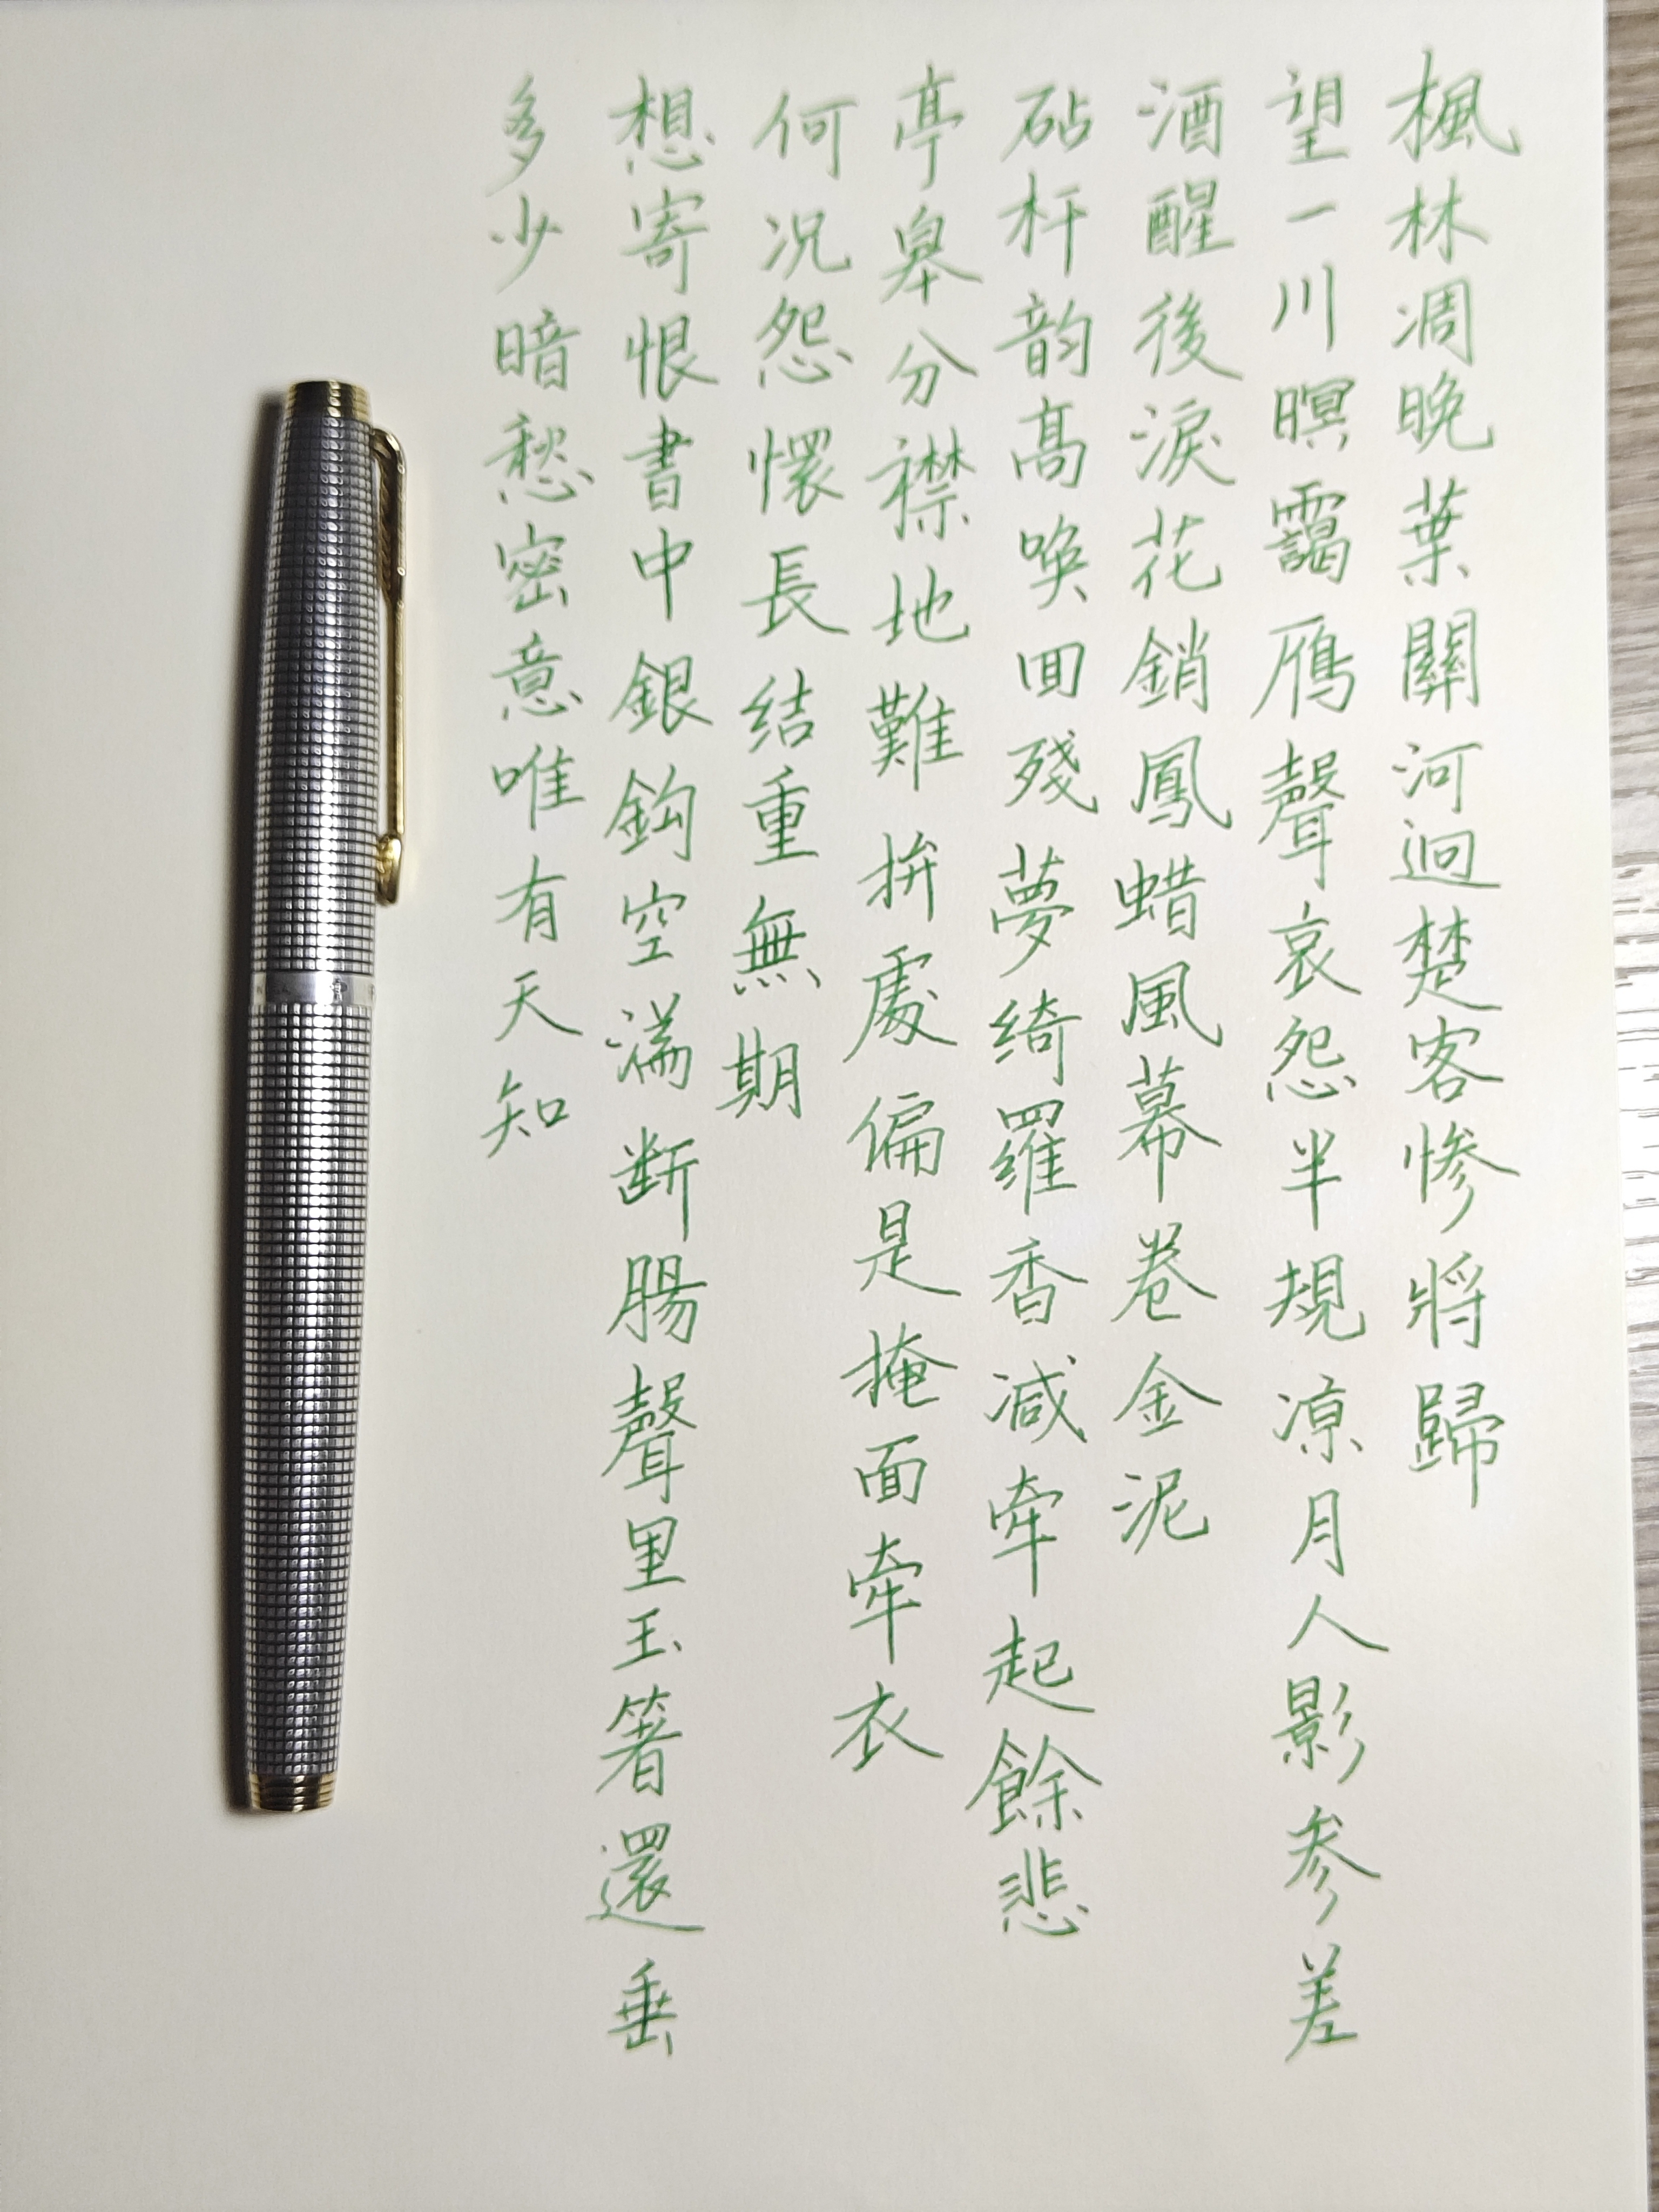 楓林凋晚葉關河迥楚客慘將歸
望一川暝靄鴈聲哀怨半規涼月人影参差
酒醒後淚花銷鳳蜡風幕卷金泥
砧杆韵高喚回殘夢綺羅香減牽起餘悲
亭皋分襟地難拚處偏是掩面牽衣
何况怨懷長结重無期
想寄恨書中銀鈎空滿断腸聲里玉箸還垂
多少暗愁密意唯有天知